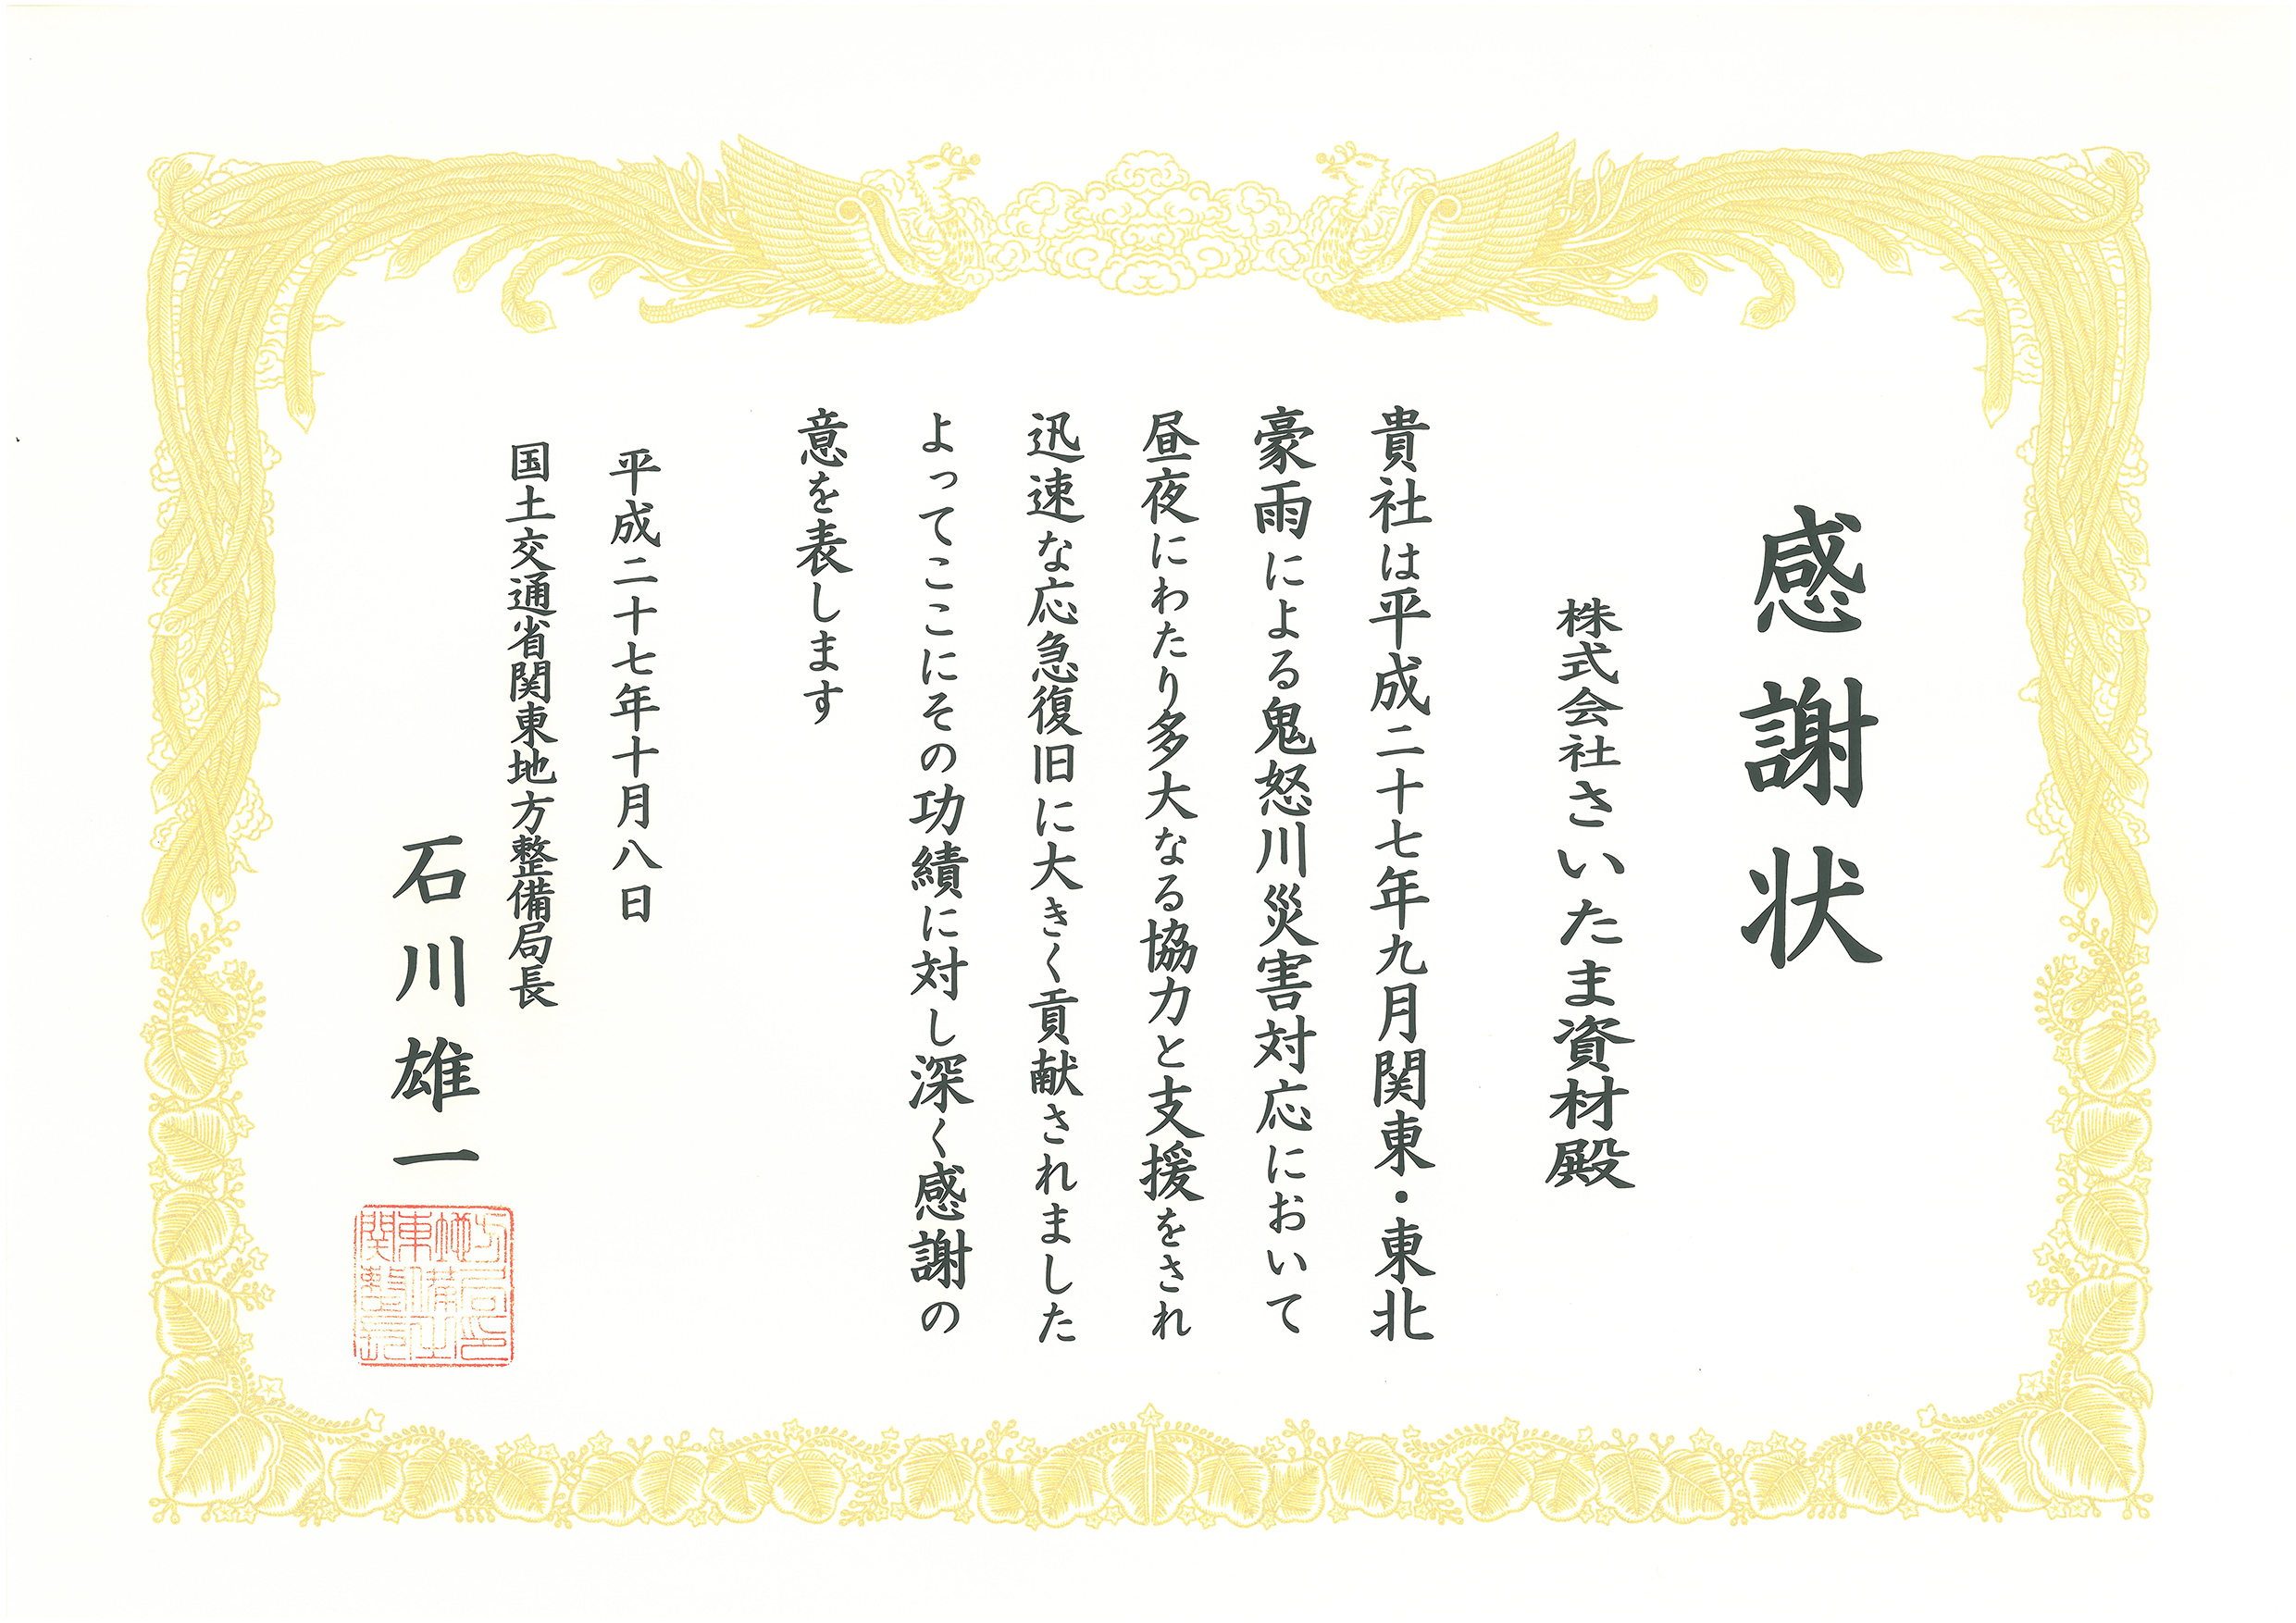 感謝状
株式会社さいたま資材殿
貴社は平成二十七年九月関東・東北
豪雨による鬼怒川災害対応において
昼夜にわたり多大なる協力と支援をされ
迅速な応急復旧に大きく貢献されました
よってここにその功績に対し深く感謝の
意を表します
平成二十七年十月八日
国土交通省関東地方整備局長
石川雄一